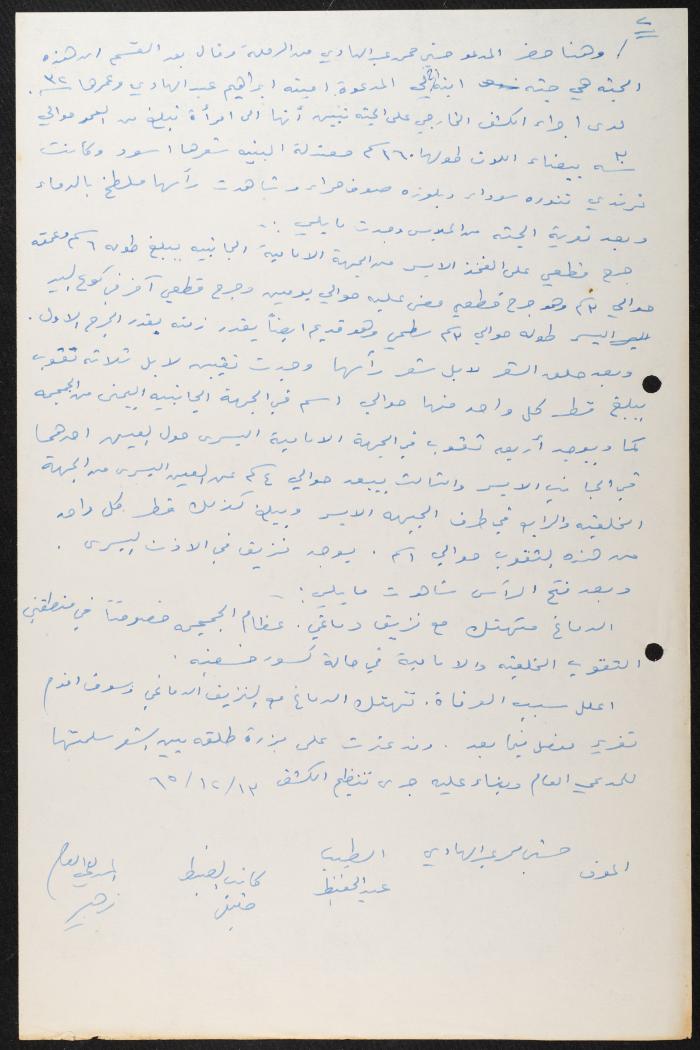 ٢
/ وهنا حضر المدعو حسني محمد عبد الهادي من الرملة وقال بعد القسم ان هذه
الجثة هي جثة ابنة المدعوة امينه ابراهيم عبد الهادي وعمرها ٣٢ .
لدى اجراء الكشف الخارجي على الجثة تبين أنها الى امرأة تبلغ من العمر حوالي
٣٠ سنه بيضاء اللون طولها ١٦٠ سم معتدلة البنيه شعرها اسود وكانت
ترتدي تنوره سوداء وبلوزه صوف حمراء وشاهدت رأسها ملطخ بالدماء
وبعد تعرية الجثه من الملابس وجدت ما يلي :
جرح قطعي على الفخذ الايسر من الجهة الامامية الجانبيه يبلغ طوله ٦ سم وعمقه
حوالي ٣ سم وهو جرح قطعي مضى عليه حوالي يومين وجرح قطعي آخر في كوع اليد
اليسر طوله حوالي ٣ سم سطحي وهو قديم ايضاً يقدر زمنه بقدر الجرح الاول .
وبعد حلق الشعر لابل شعر رأسها وجدت لابل ثلاثه ثقوب
يبلغ قطر كل واحد منها حوالي ١ سم في الجهة الجانبيه اليمنى من الجمجمه
كما ويوجد أربعه ثقوب في الجهة الامامية اليسرى حول العين احدهما
في الجانب الايسر والثالث يبعد حوالي ٤ سم عن العين اليسرى من الجهة
الخلفيه والرابع في طرف الجبهه الايسر ويبلغ كذلك قطر كل واحد
من هذه الثقوب حوالي ١ سم . يوجد نزيف في الاذن اليسرى .
وبعد فتح الرأس شاهدت ما يلي :
الدماغ متهتك مع نزيف دماغي . عظام الجمجمه خصوصاً في منطقتي
الثقوب الخلفيه والامامية في حالة كسور خسفيه .
اعلل سبب الوفاة . تهتك الدماغ مع النزيف الدماغي وسوف اقدم
تقرير مفصل فيما بعد . وقد عثرت على بزرة طلقه بين الشعر سلمتها
للمدعي العام وبناء عليه جرى تنظيم الكشف ٦٥/١٢/١٣
المعرف حسني محمد عبد الهادي الطبيب كاتب الضبط المدعي العام
عبد الحفيظ زهير